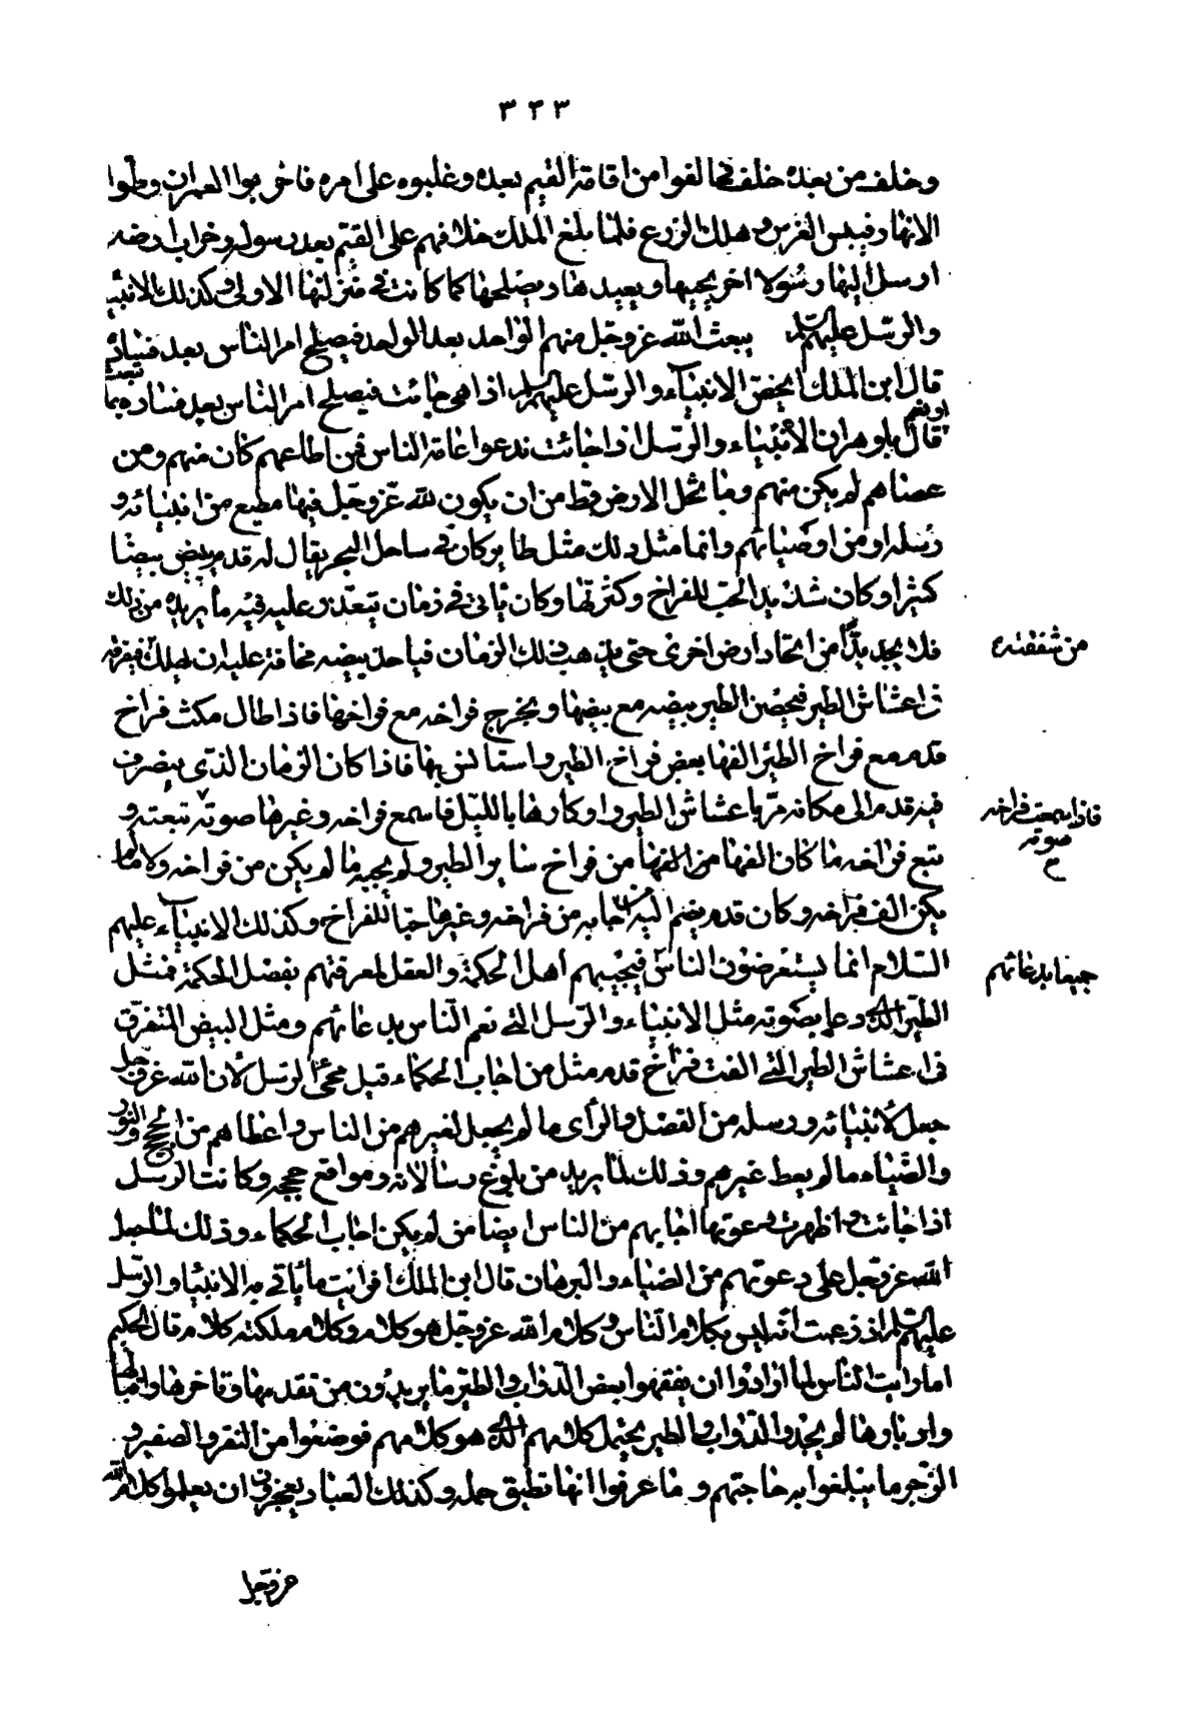 ٣٣٣
وخلف من بعده خلف فخالفوا من اقامة القيم بعده وغلبوه على امره فاخربوا العمران وطموا
الانهار فيبس الغرس وهلك الزرع فلما بلغ الملك خلافهم على القيم بعد رسوله وخراب ارضه
ارسل اليها رسولا اخر يحييها ويعيدها ويصلحها كما كانت في منزلتها الاولى وكذلك الانبياء
والرسل عليهم السلام يبعث الله عز وجل منهم الواحد بعد الواحد فيصلح امر الناس بعد فساده
قال ابن الملك ايخص الانبياء والرسل عليهم السلام اذا هي جائت فيصلح امر الناس بعد فساده بما تبعث
او يعم
قال بلوهر ان الانبياء والرسل اذا جائت تدعوا عامة الناس فمن اطاعهم كان منهم ومن
عصاهم لم يكن منهم وما تخل الارض قط من ان يكون لله عز وجل فيها مطيع من انبيائه و
رسله او من اوصيائهم وانما مثل ذلك مثل طاير كان في ساحل البحر يقال له قدم يبيض بيضا
كثيرا وكان شديد الحب للفراخ وكثرتها وكان يأتي في زمان يتعذر عليه فيه ما يريده من ذلك
فلا يجد بدا من اتخاذ ارض اخرى حتى يذهب ذلك الزمان فياخذ بيضه مخافة عليه ان يهلك فيفرقه
من شفقته
في اعشاش الطير فيحضن الطير بيضه مع بيضها ويخرج فراخه مع فراخها فاذا طال مكث فراخ
قدم مع فراخ الطير الفها بعض فراخ الطير واستانس بها فاذا كان الزمان الذي ينصرف
فيه قدم الى مكانه مر باعشاش الطير واوكارها بالليل فاسمع فراخه وغيرها صوته تبعته و
فاذا سمعت فراخه
صوته
خ
تبع فراخه ما كان الفها من الفها من فراخ سائر الطير ولم يجبه ما لم يكن من فراخه ولا ما لم
يكن الف فراخه وكان قدم يضم اليه من اجابه من فراخه وغيرها حبا للفراخ وكذلك الانبياء عليهم
السلام انما يستعرضون الناس فيجيبهم اهل الحكمة والعقل لمعرفتهم بفضل الحكمة فمثل
جميعا بدعائهم
الطير الذي دعا بصوته مثل الانبياء والرسل التي تعم الناس بدعائهم ومثل البيض المتفرق
في اعشاش الطير التي الفت فراخ قدم مثل من اجاب الحكماء قبل مجئ الرسل لأن الله عز وجل
جعل لأنبيائه ورسله من الفضل والرأى ما لم يجعل لغيرهم من الناس واعطاهم من الحجج والنور
والضياء ما لم يعط غيرهم وذلك لما يريد من بلوغ رسالاته ومواقع حججه وكانت الرسل
اذا جائت واظهرت دعوتها اجابهم من الناس ايضا من لم يكن اجاب الحكماء وذلك لما جعل
الله عز وجل على دعوتهم من الضياء والبرهان قال ابن الملك افرأيت ما يأتي به الانبياء والرسل
عليهم السلام اذ زعمت انه ليس بكلام الناس وكلام الله عز وجل هو كلام وكلام ملئكته كلام قال الحكيم
اما رأيت الناس لما ارادوا ان يفقهوا بعض الدواب والطير ما يريدون من تقدمها وتأخرها واقبالها
وادبارها لم يجدوا الدواب والطير يحتمل كلامهم الذي هو كلامهم فوضعوا من النقر والصفير و
الزجر ما يبلغوا به حاجتهم وما عرفوا انها تطيق حمله وكذلك العباد يعجزون ان يعلموا كلام الله
عز وجل